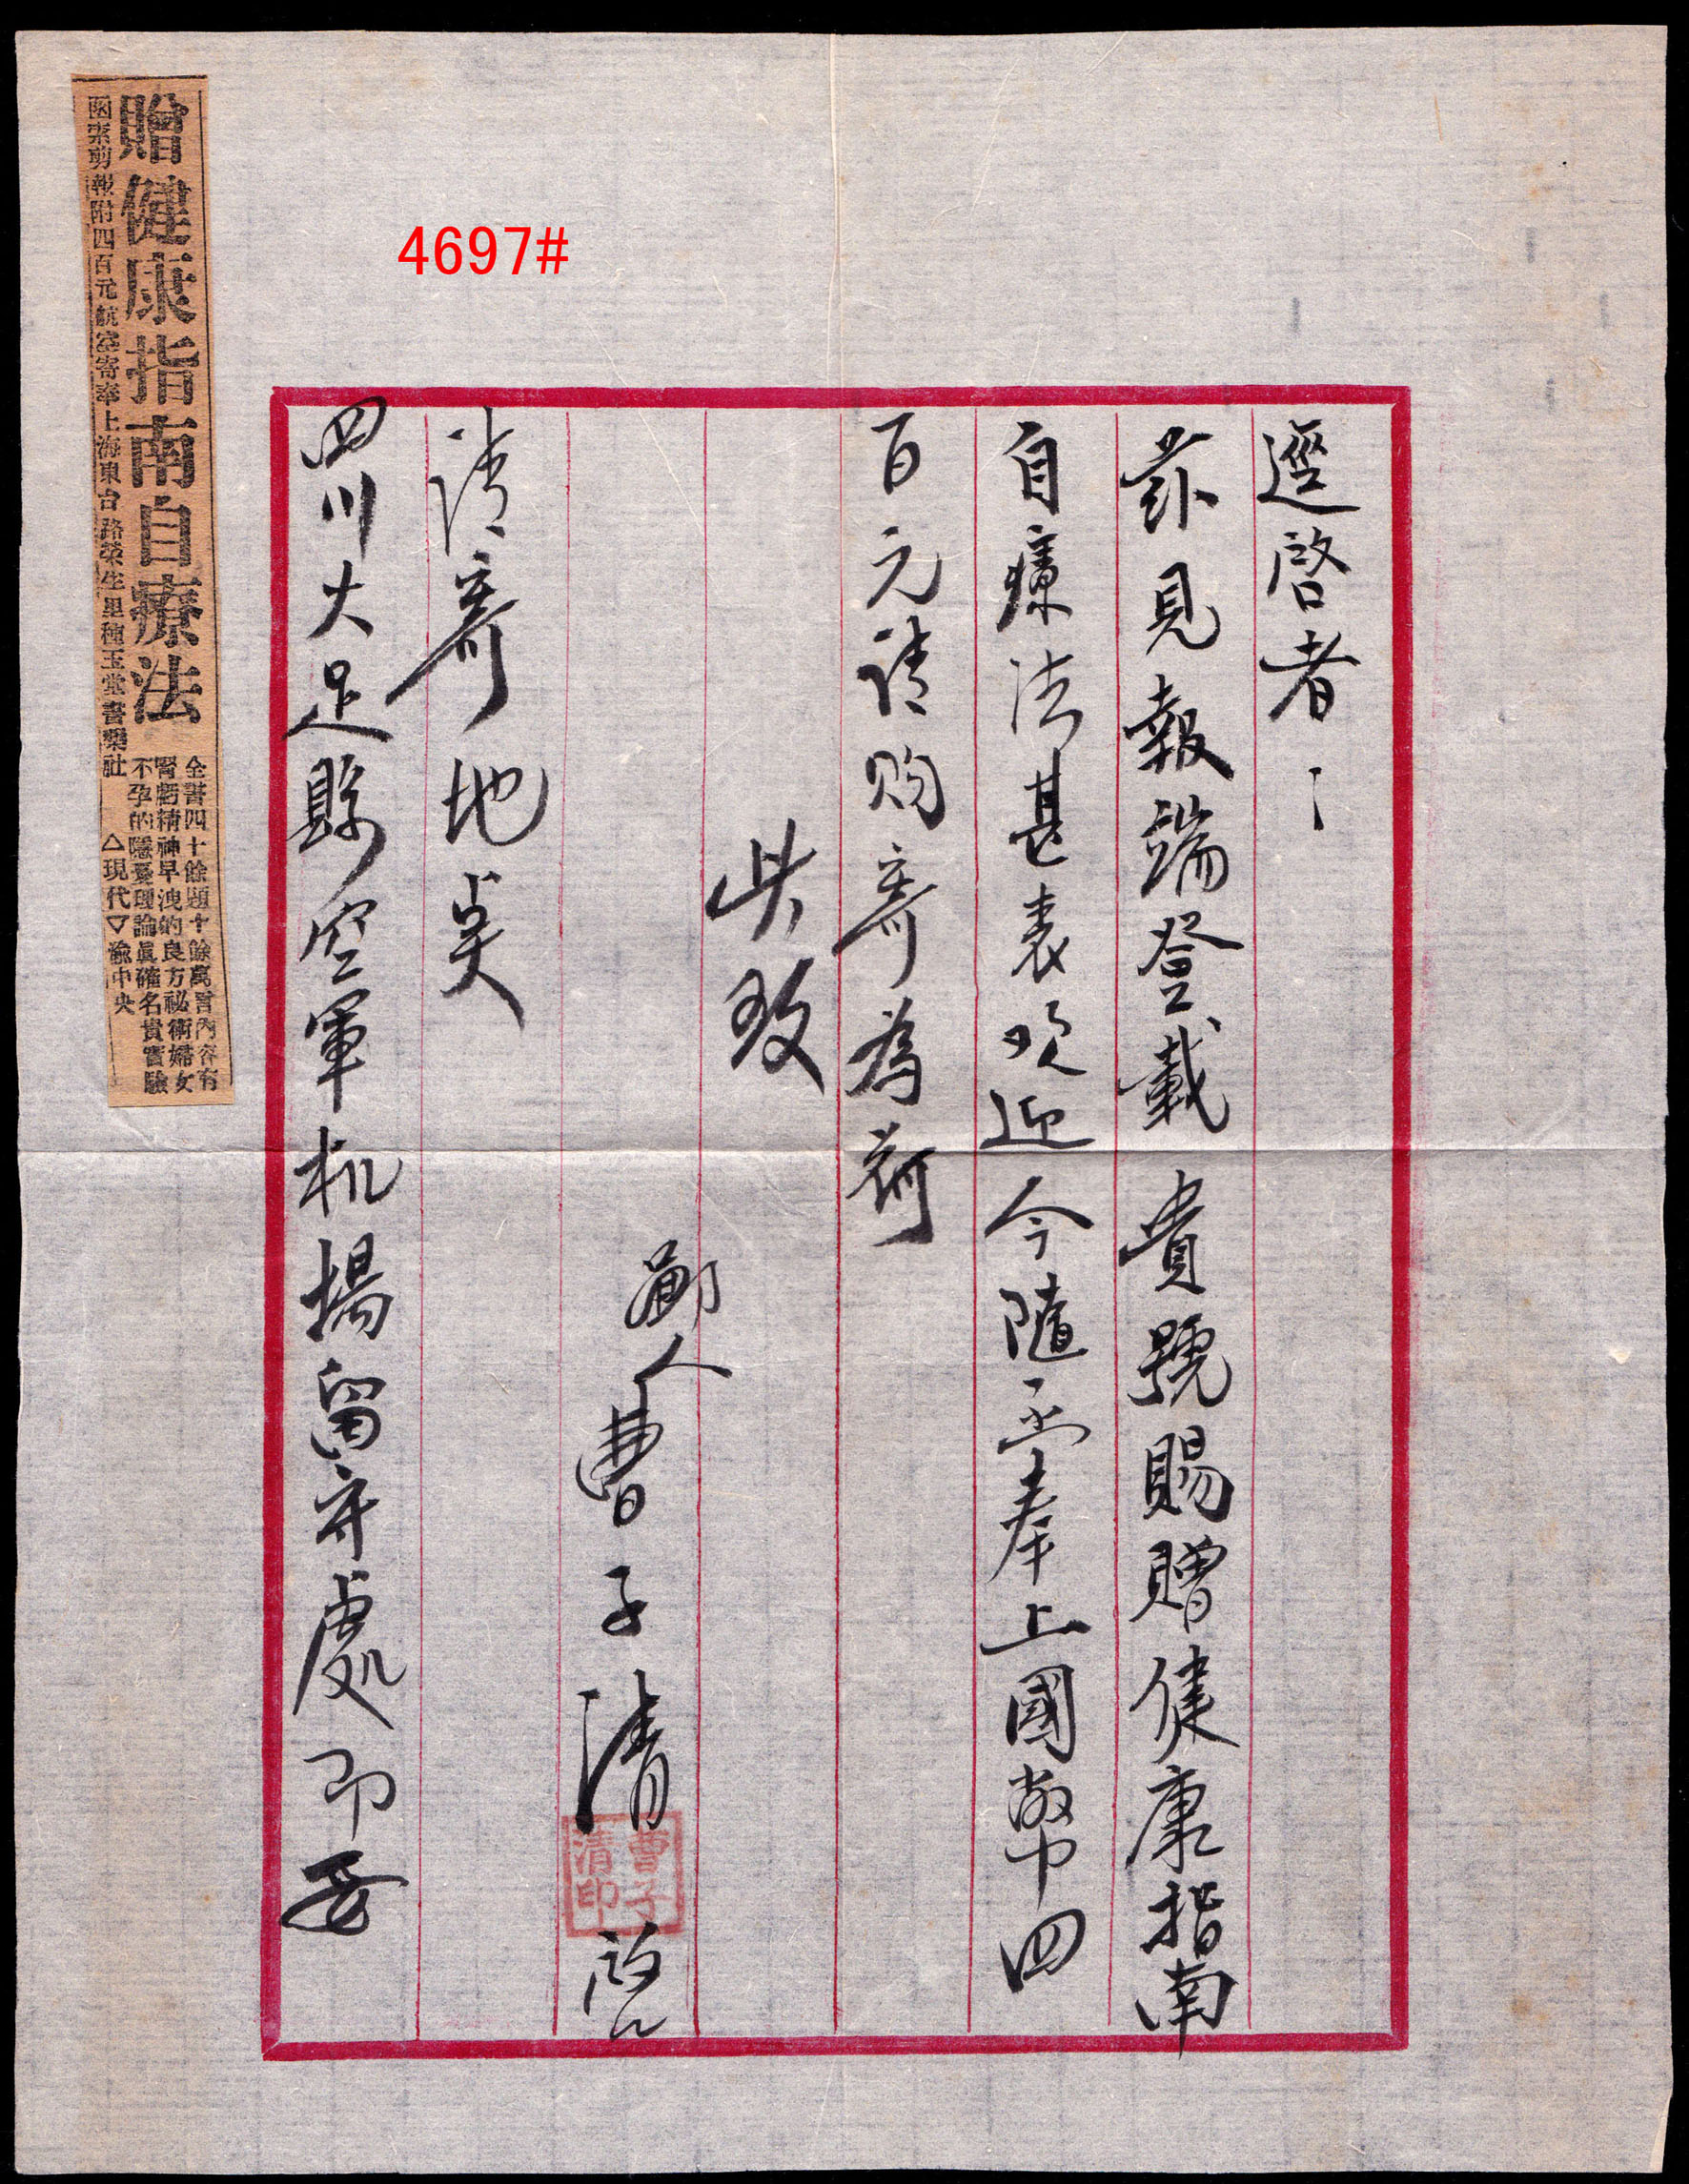 逕啓者:
茲見報端登載 貴號賜贈健康指南
自療法甚表欢迎今隨函奉上國幣四
百元請购寄為荷
此致
鄙人曹子清啟
曹子清印
請寄地奌
四川大足縣空軍机場留守處即妥
4697#
贈健康指南自療法
全書四十餘題十餘萬言內容有
腎虧精神早洩的良方祕術婦女
不孕的隱憂理論眞確名貴實驗
函索剪報附四百元航空寄奉上海東台路榮生里種玉堂書藥社 △現代▽渝中央